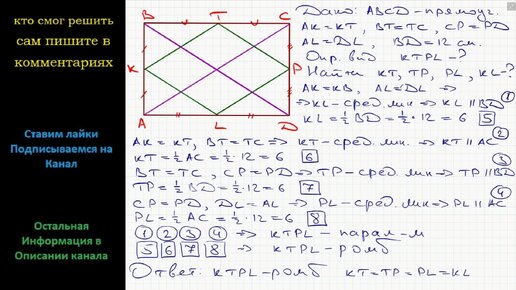 кто смог решить
сам пишите в
комментариях
Ставим лайки
Подписываемся на
Канал
Остальная
Информация в
Описании канала
B
T
C
K
P
A
L
D
Дано: ABCD – прямоуг.
AK = KT, BT = TC, CP = PD
AL = DL, BD = 12 см.
Опр. вид KTPL - ?
Найти KT, TP, PL, KL - ?
AK = KB, AL = DL ⇒
⇒ KL – сред. лин ⇒ KL || BD ①
KL = ½ BD = ½ · 12 = 6 [5]
AK = KT, BT = TC ⇒ KT – сред. лин. ⇒ KT || AC ②
KT = ½ AC = ½ · 12 = 6 [6]
BT = TC, CP = PD ⇒ TP – сред. лин ⇒ TP || BD ③
TP = ½ BD = ½ · 12 = 6 [7]
CP = PD, DL = AL ⇒ PL – сред. лин ⇒ PL || AC ④
PL = ½ AC = ½ · 12 = 6 [8]
① ② ③ ④ ⇒ KTPL – парал-м
[5] [6] [7] [8] ⇒ KTPL – ромб
Ответ: KTPL – ромб KT = TP = PL = KL